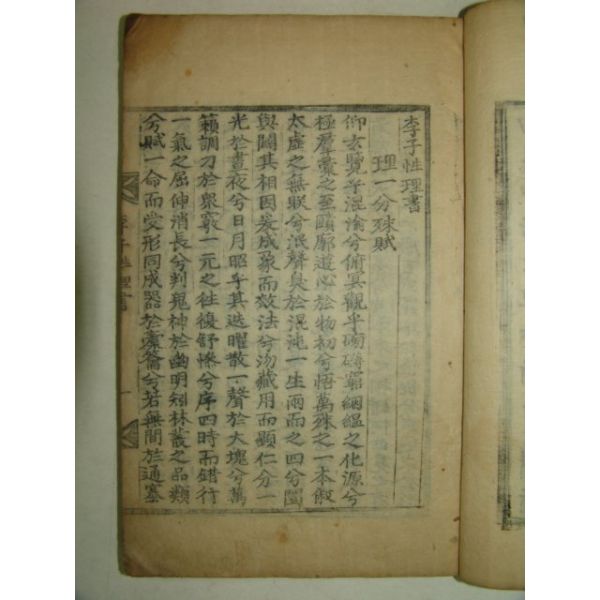 李子性理書
理一分殊賦
仰玄覽乎混淪兮俯冥觀乎磅礴窮絪縕之化源兮
極羣彙之至賾廓道心於物初兮悟萬殊之一本俶
太虛之無眹兮泯聲臭於混沌一生兩而之四兮闔
與闢其相因爰成象而效法兮沕藏用而顯仁分一
光於晝夜兮日月昭乎其迭曜散一聲於大塊兮萬
籟調刁於衆竅一元之往復舒慘兮序四時而錯行
一氣之屈伸消長兮判鬼神於幽明矧林叢之品類
兮賦一命而受形同成器於橐籥兮若無間於通塞
李子性理書
一